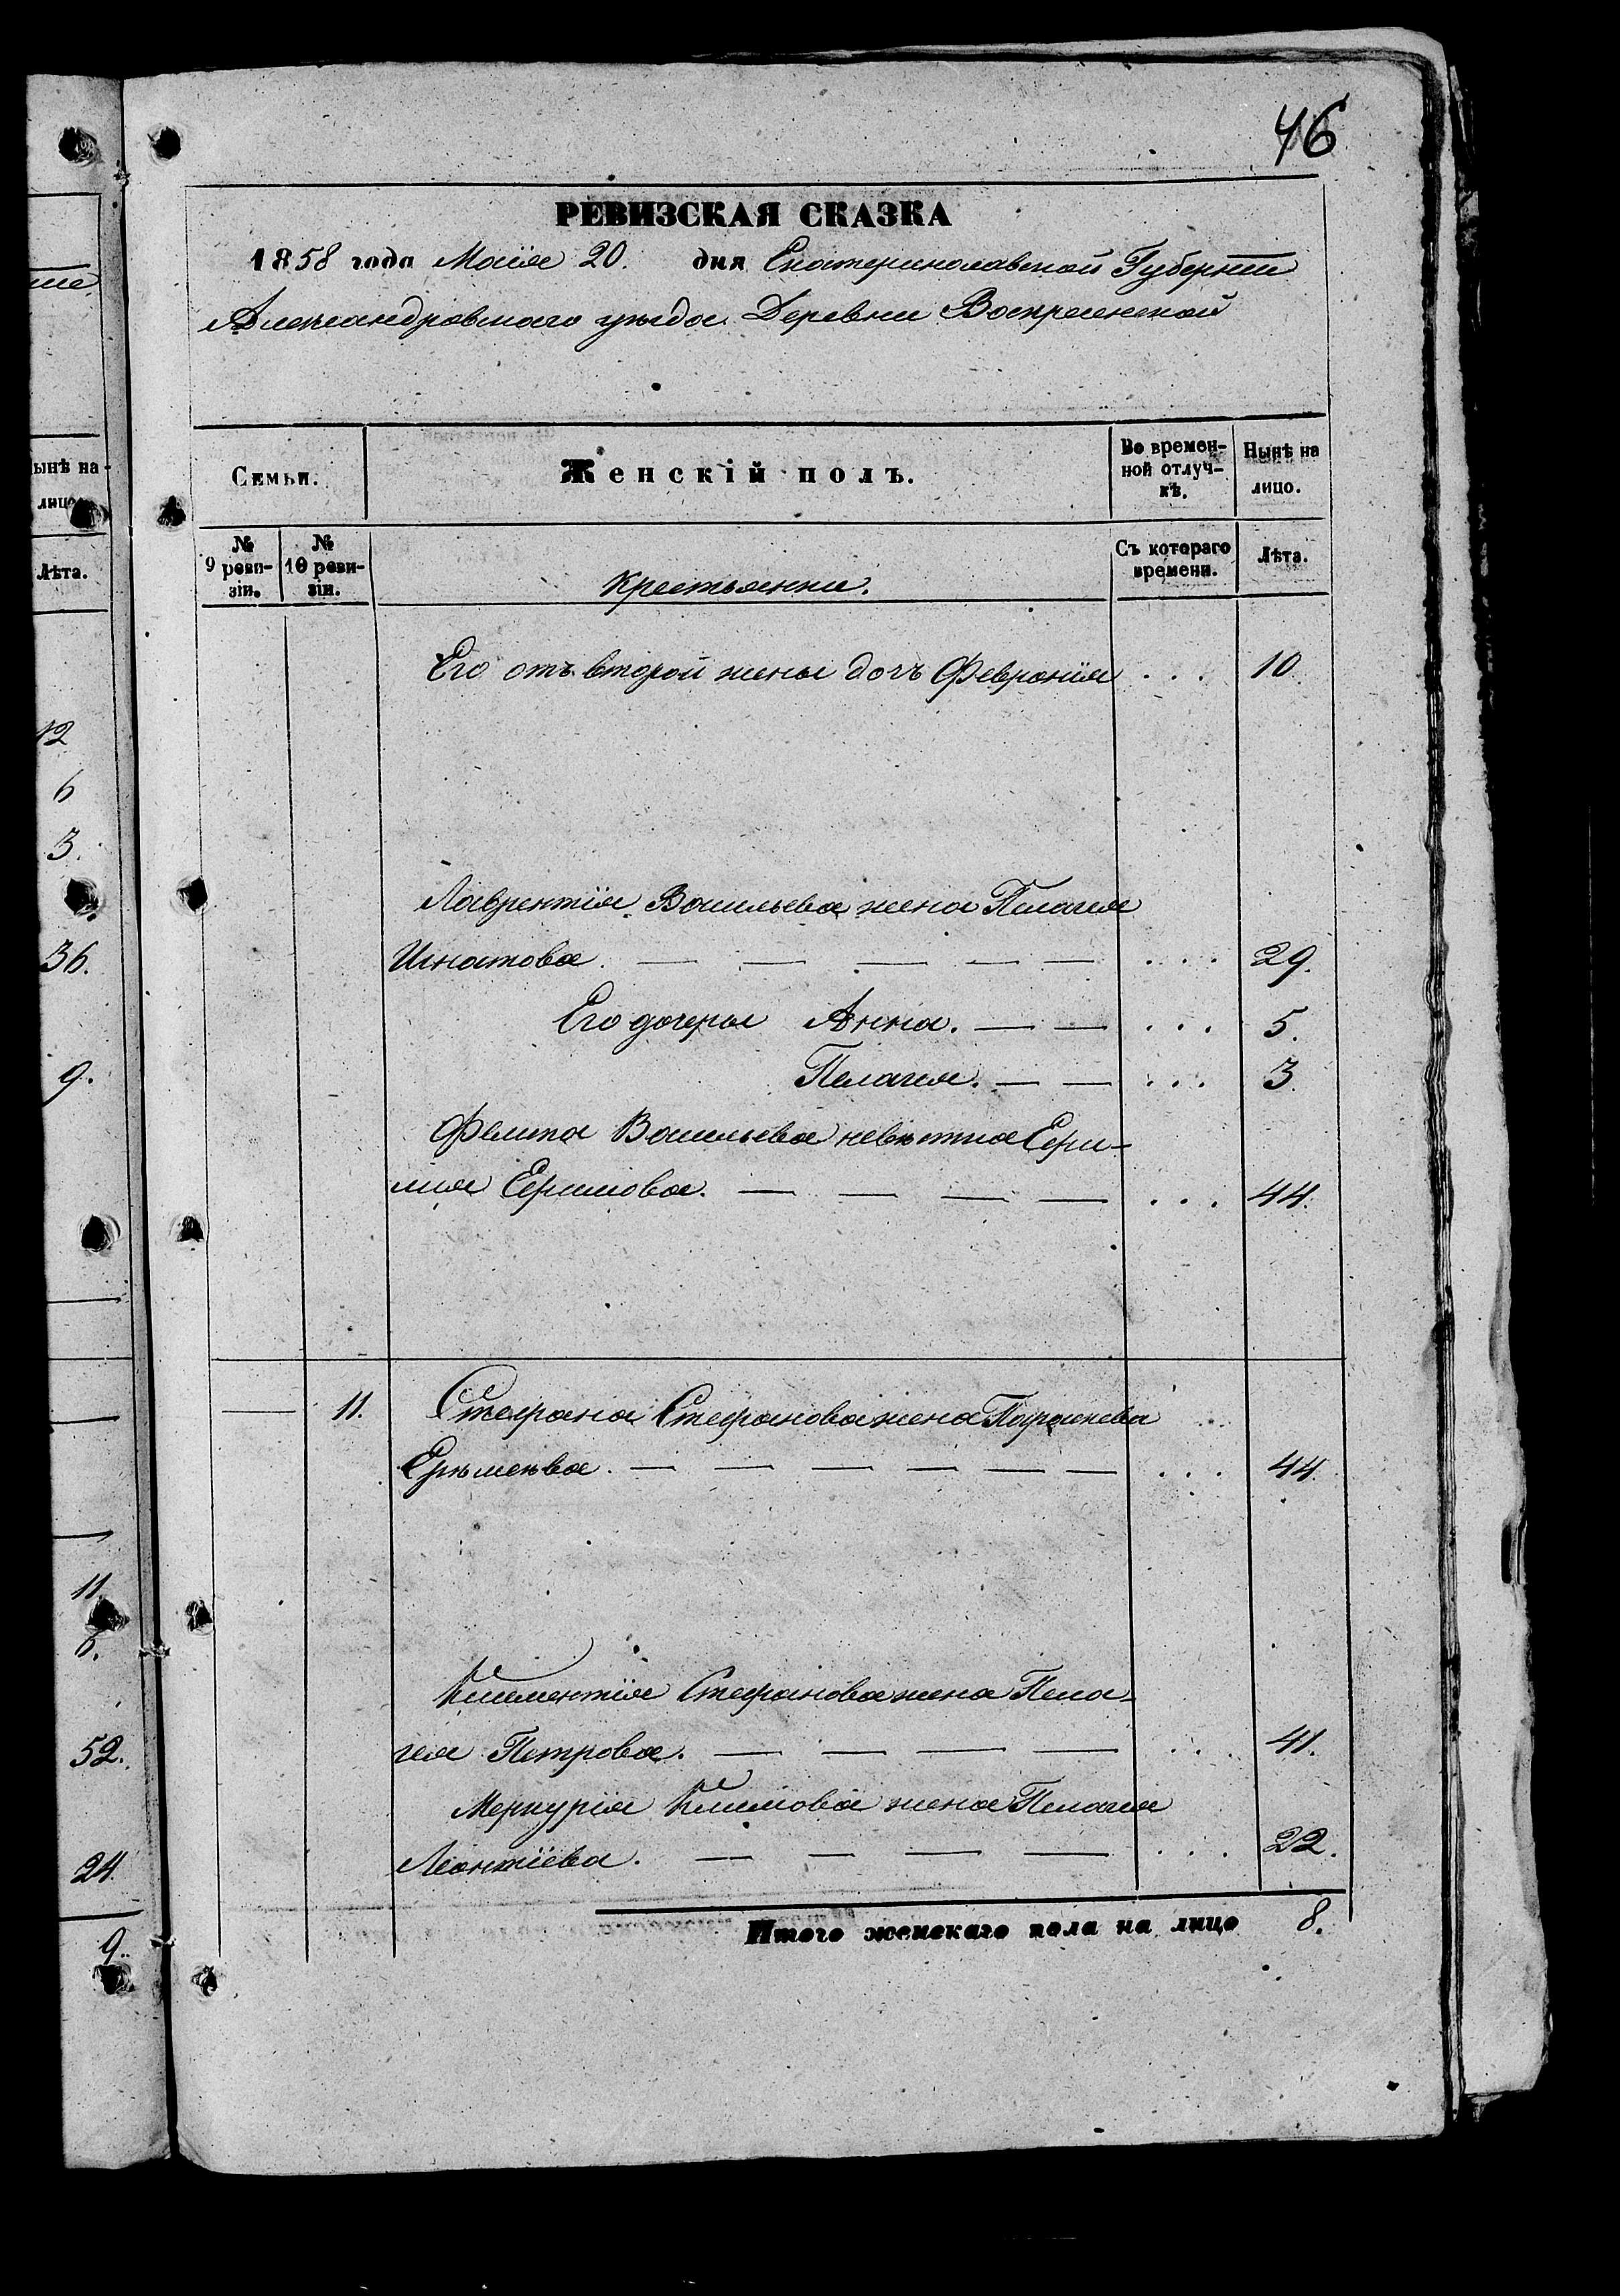 46
РЕВИЗСКАЯ СКАЗКА
1858 года Маія 20. дня Екатеринославской Губерніи
Александровскаго уѣзда Деревни Воскресенской
Семьи.
Женскій полъ.
Во времен-
ной отлуч-
кѣ.
Нынѣ на
лицо.
№
9 реви-
зіи.
№
10 реви-
зіи.
Крестьянки.
Съ котораго
времени.
Лѣта.
Его отъ второй жены дочь Февронія . . . 10.
Лаврентія Васильева жена Пелагея
Игнатова. — — — — — . . . 29.
Его дочеры Анна. — — . . . 5.
Пелагея. — — . . . 3.
Филипа Васильева невѣстка Ефи-
мия Ефимова. — — — — . . . 44.
— 11. Стефана Стефанова жена Параскева . . .
— — — — — — . . . 44.
Климентія Стефанова жена Пела-
гея Петрова. — — — — . . . 41.
Меркурія Климова жена Пелагея
Леонтіева. — — — — . . . 22.
Итого женскаго пола на лицо 8.
ынѣ на
лицо
Лѣта.
12
6
3.
36.
9.
11
6.
52.
24.
9.